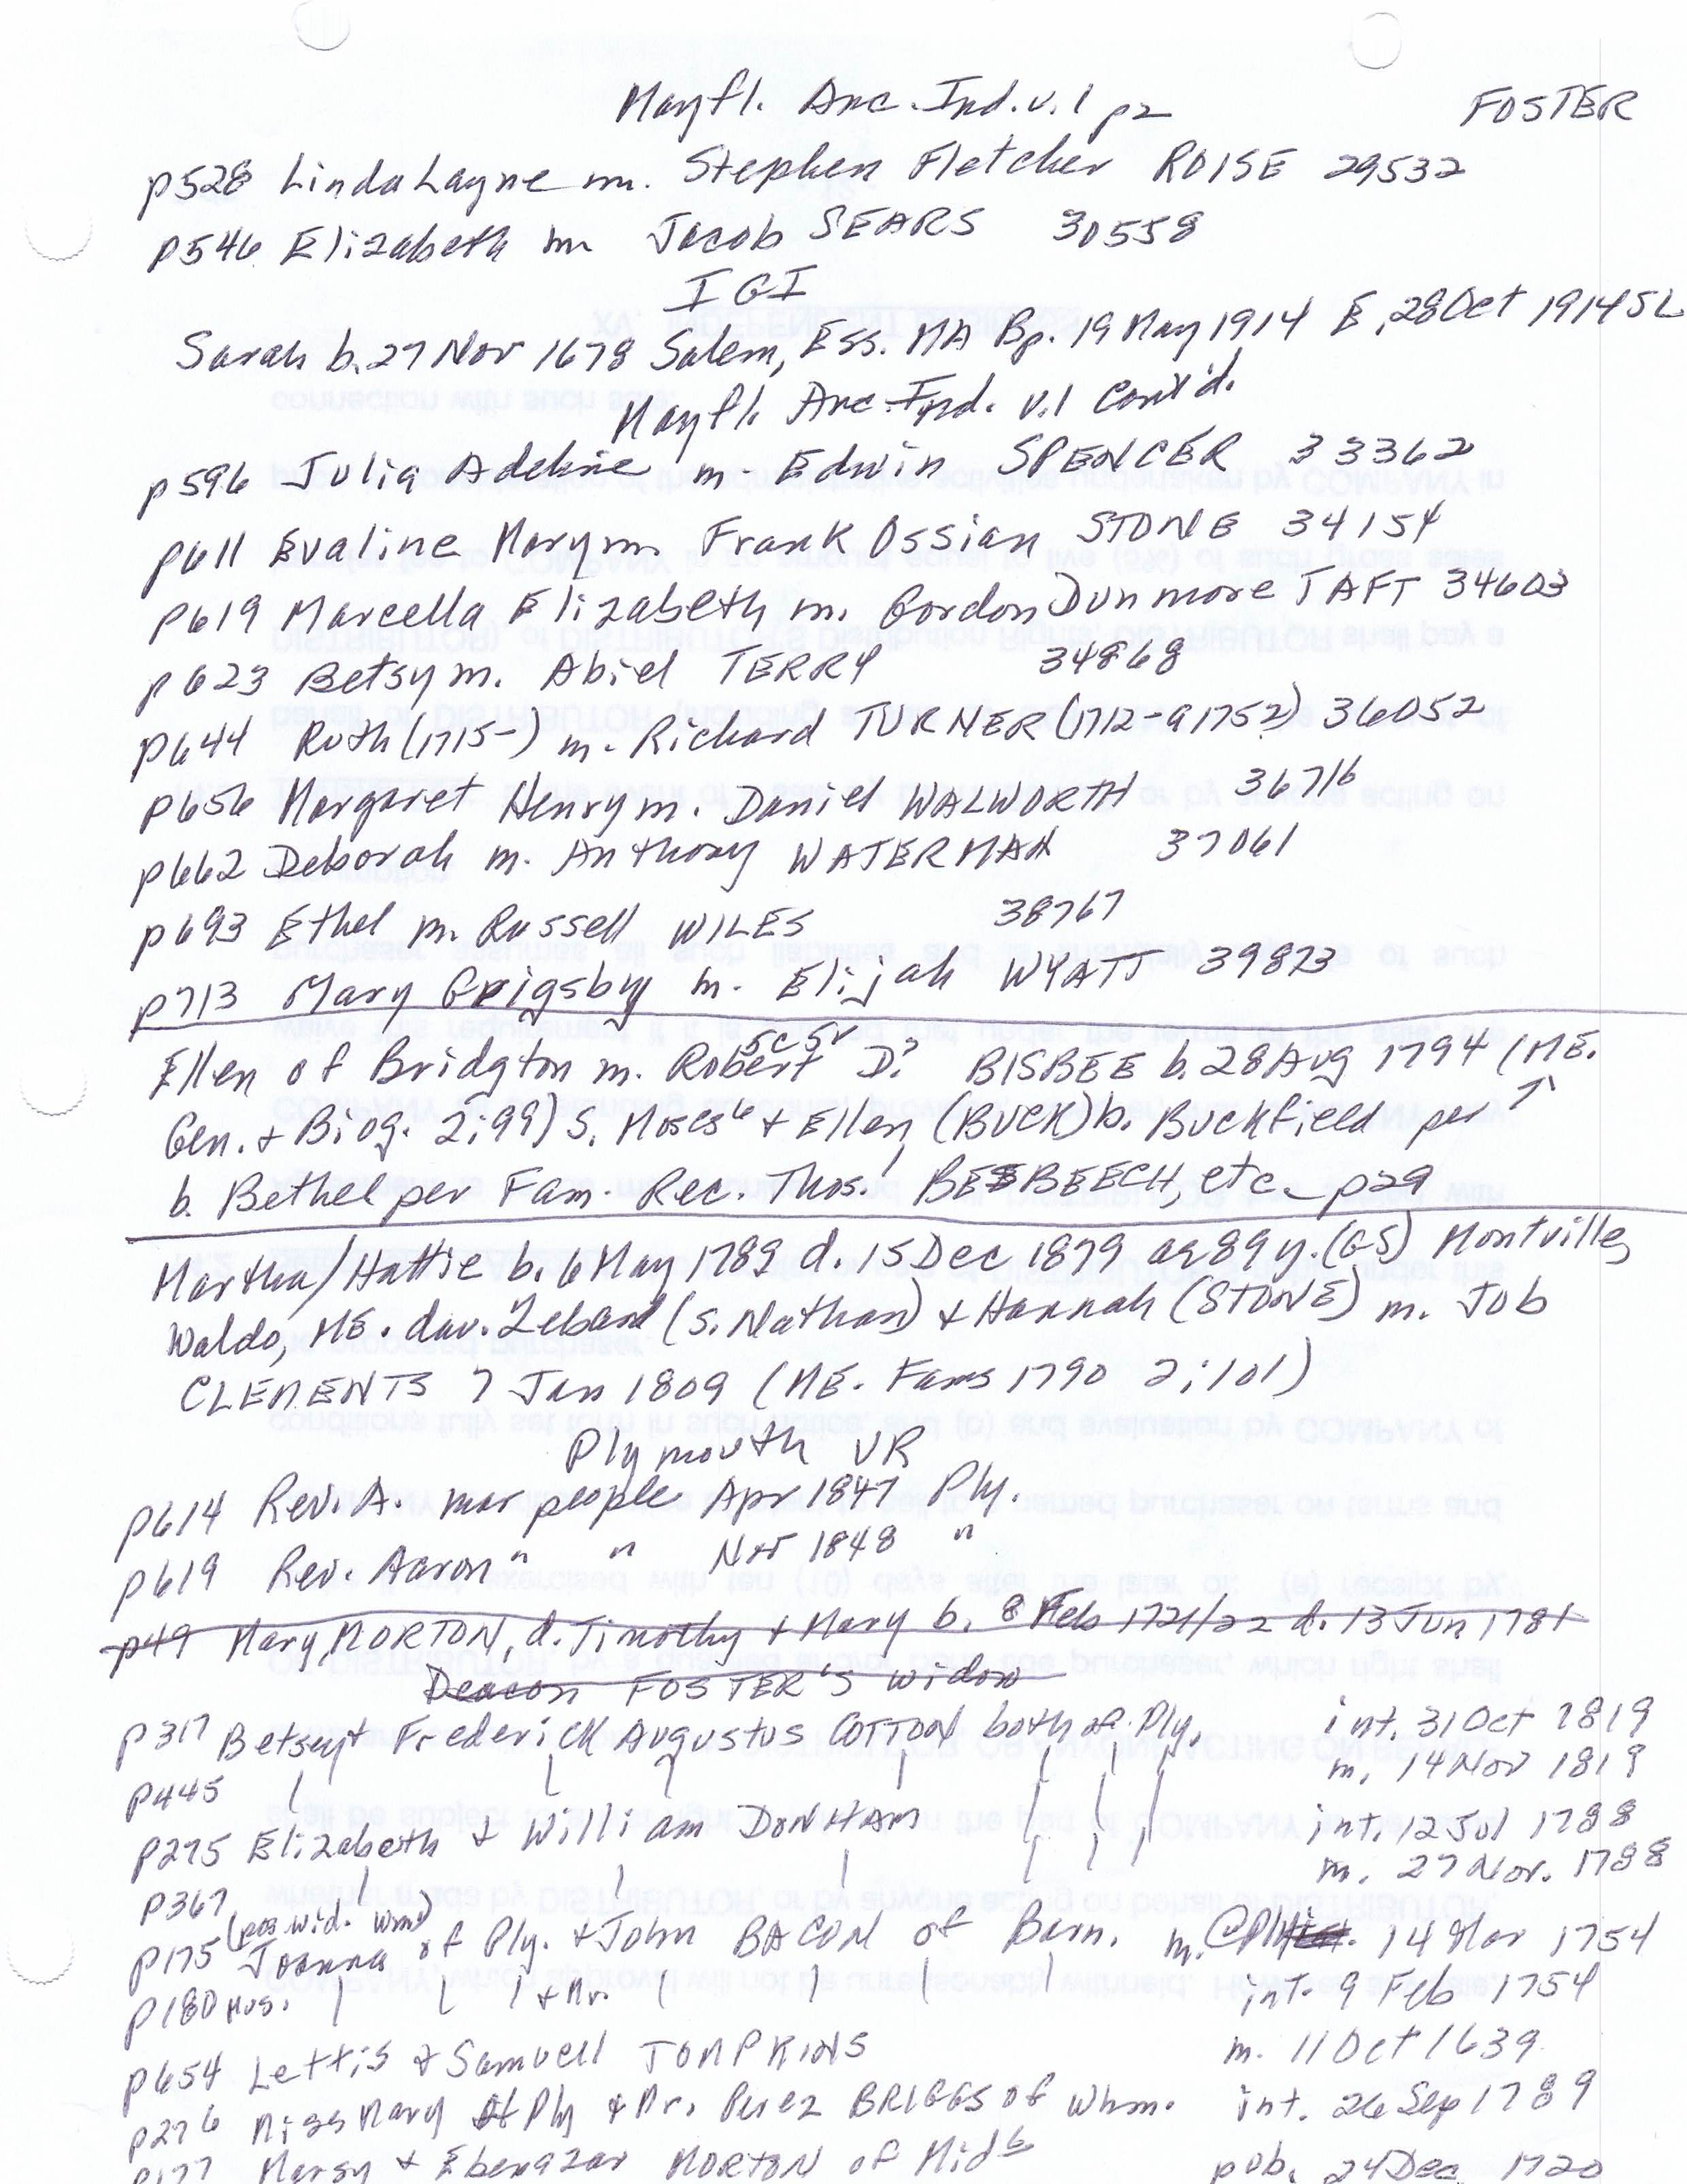 Mayfl. Anc. Ind. v.1 p2 FOSTER
p528 Linda Layne m. Stephen Fletcher ROISE 29532
p546 Elizabeth m Jacob SEARS 30558
IGI
Sarah b. 27 Nov 1678 Salem, Ess. MA Bp. 19 May 1914 E, 28 Oct 1914 SL
Mayfl. Anc. Ind. v.1 Cont'd.
p596 Julia Adeline m. Edwin SPENCER 33362
p611 Evaline Mary m. Frank Ossian STONE 34154
p619 Marcella Elizabeth m. Gordon Dunmore TAFT 34603
p623 Betsy m. Abiel TERRY 34868
p644 Ruth (1715-) m. Richard TURNER (1712-a1752) 36052
p656 Margaret Henry m. Daniel WALWORTH 36716
p662 Deborah m. Anthony WATERMAN 37061
p693 Ethel m. Russell WILES 38767
p713 Mary Grigsby m. Elijah WYATT 39823
Ellen of Bridgton m. Robert D? BISBEE b. 28 Aug 1794 (ME.
Gen. + Biog. 2:99) S. Moses6 + Ellen (BUCK) b. Buckfield per ↑
b. Bethel per Fam. Rec. Thos. BESBEECH, etc. p29
Martha/Hattie b. 6 May 1789 d. 15 Dec 1879 ae 89 y. (GS) Montville,
Waldo, ME. dau. (S. Nathan) + Hannah (STONE) m. Job
CLEMENTS 7 Jan 1809 (ME. Fams 1790 2:101)
Plymouth VR
p614 Rev. A. mar people Apr 1847 Ply.
p619 Rev. Aaron " " Nov 1848 "
p49 Mary MORTON, d. Timothy + Mary b. 8 Feb 1721/22 d. 13 Jun 1781
Deacon FOSTER'S widow
p317 Betsey + Frederick Augustus COTTON both of Ply. int. 31 Oct 1819
p445 m. 14 Nov 1819
p275 Elizabeth + William DONHAM int. 12 Jul 1788
p367 m. 27 Nov. 1788
(pos wid. Wm)
p175 Joanna of Ply. + John BACON of Barn. m. @Ply. 14 Mar 1754
p180 Mrs. + Mr. int. 9 Feb 1754
p654 Lettis + Samuell TOMPKINS m. 11 Oct 1639
p276 Miss Mary of Ply + Dr. Perez BRIGGS of Whm. int. 26 Sep 1789
p177 Marsy + Ebenazar MORTON of Midb pub. 24 Dec 1720